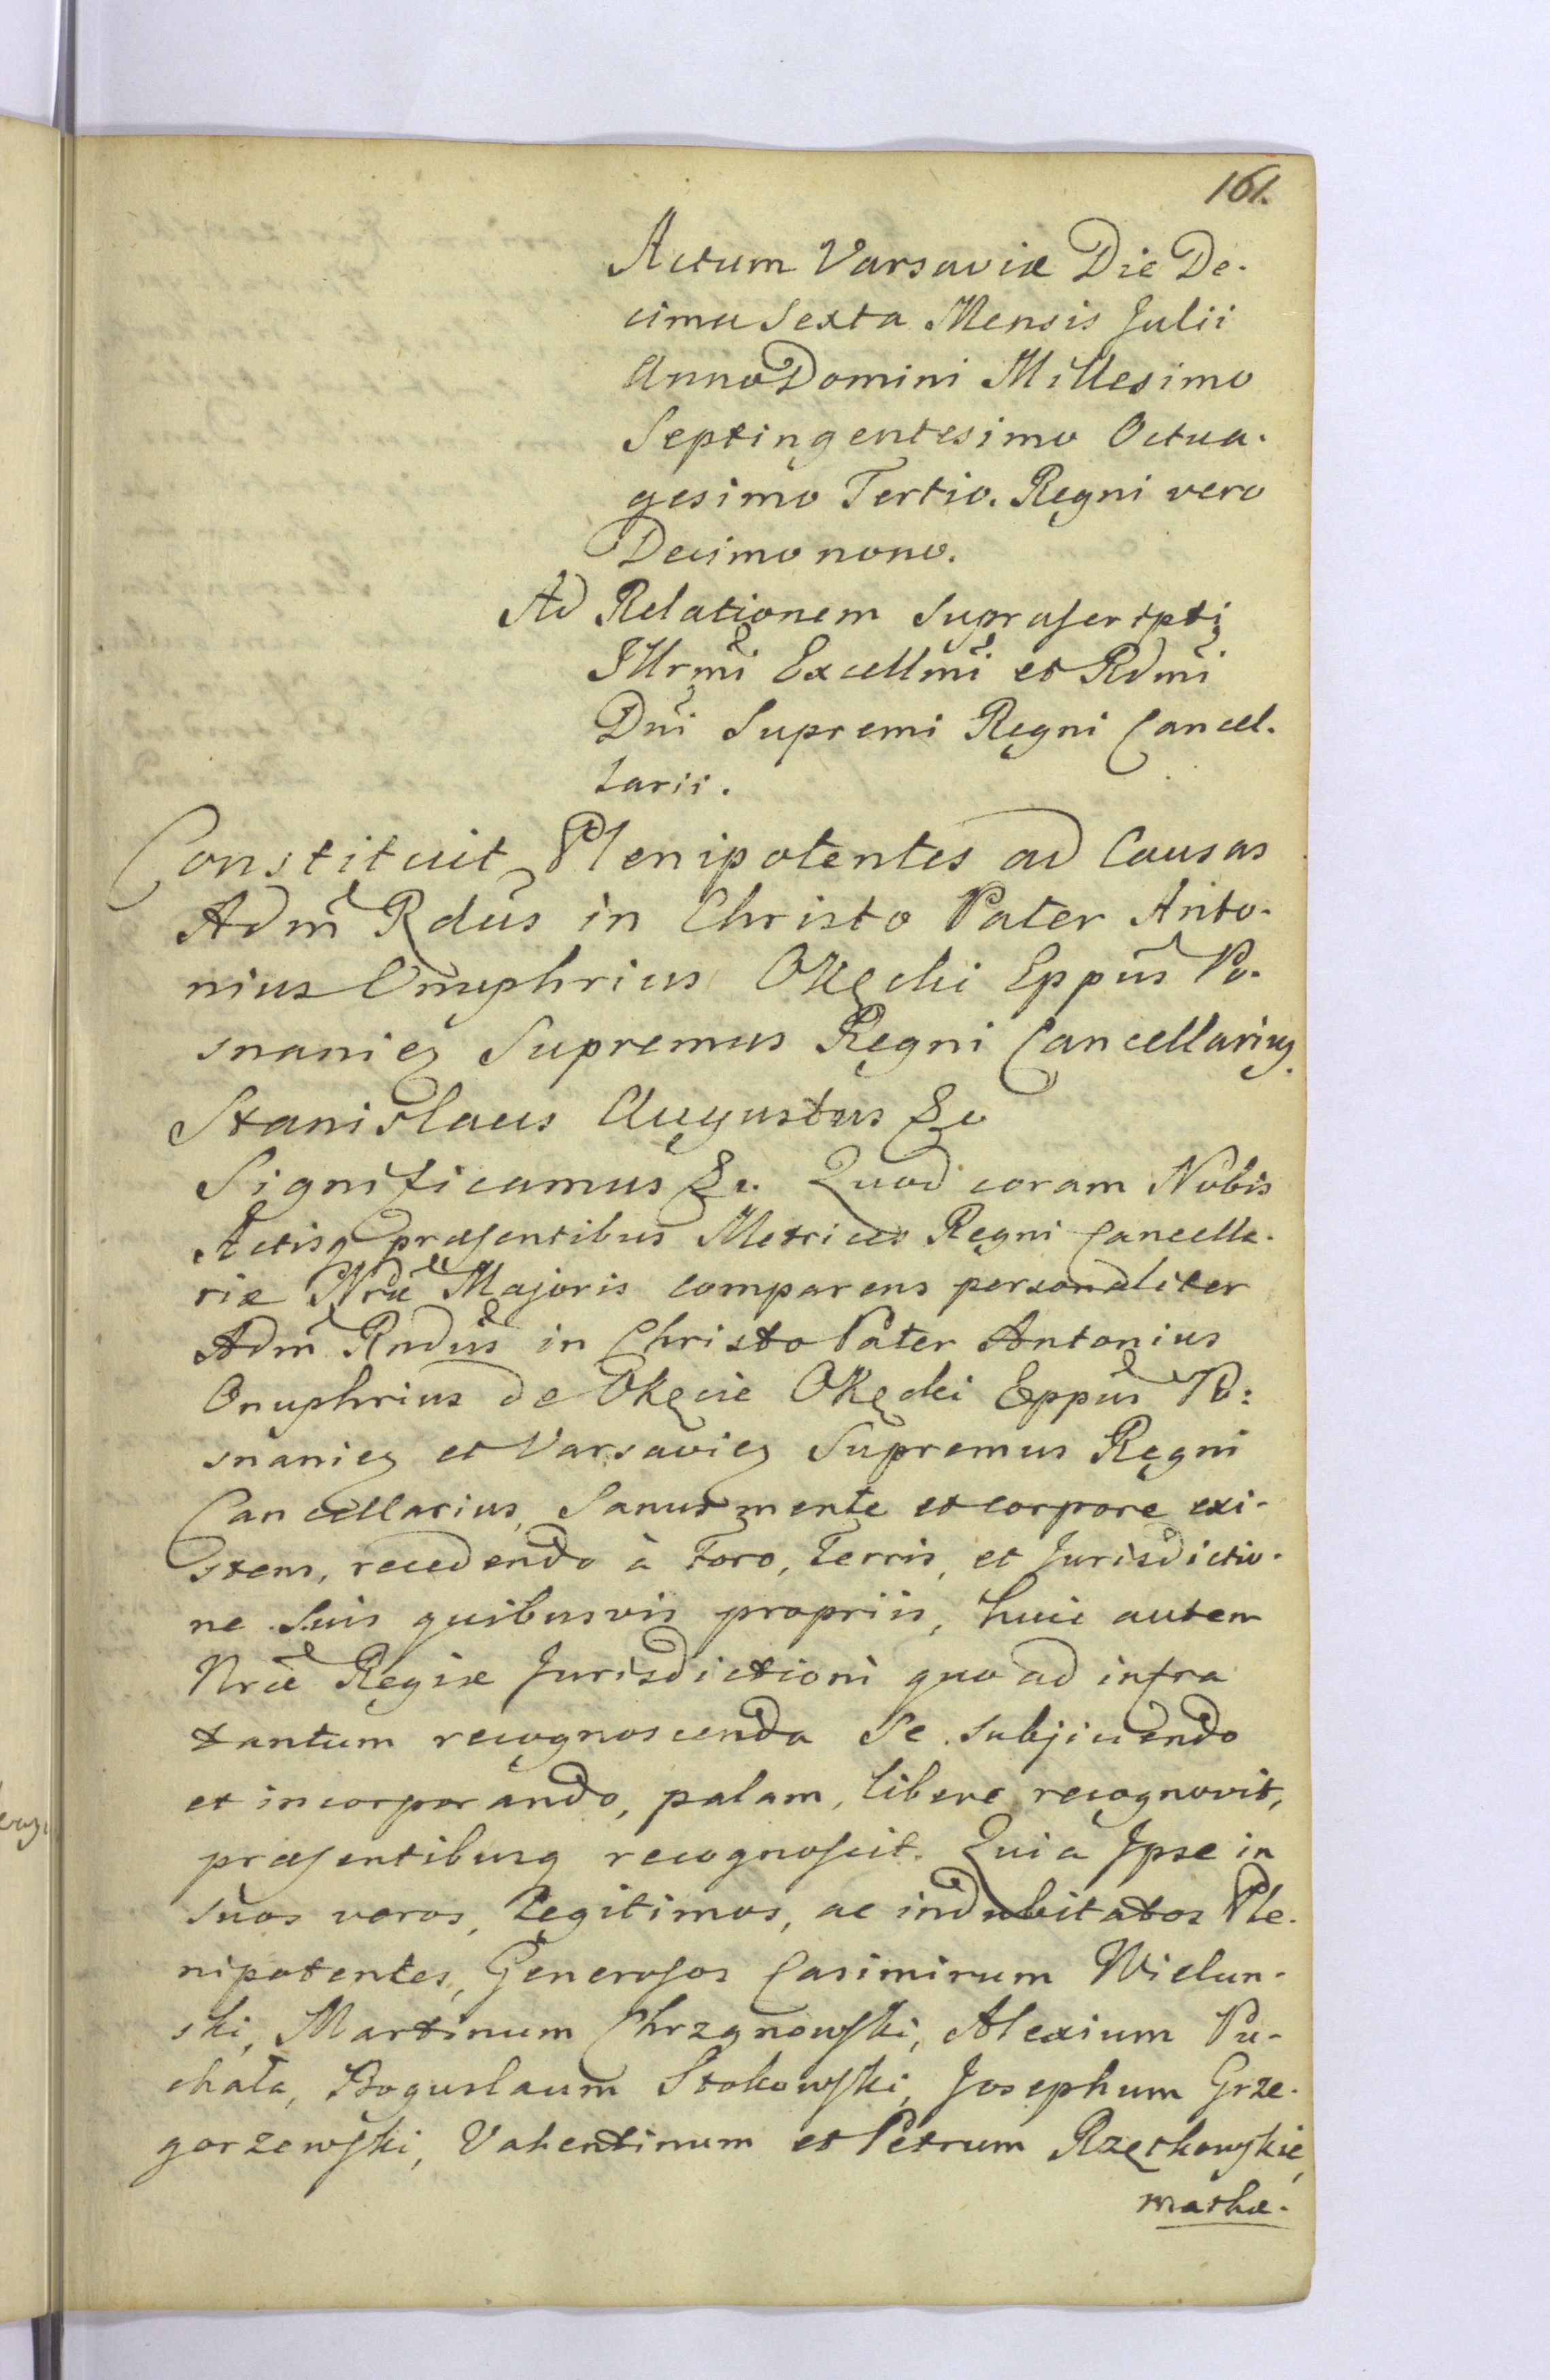 161.
Actum Varsaviæ Die De-
cima Sexta Mensis Julii
Anno Domini Millesimo
Septingentesimo Octua-
gesimo Tertio. Regni vero
Decimo nono.
Ad Relationem Supraſcripti
Illrmi Excellmi et Rdmi
Dni Supremi Regni Cancel-
larii.
Constituit Plenipotentes ad Causas
Adm Rdus in Christo Pater Anto-
nius Onuphrius Okęcki Eppus Po-
snaniens Supremus Regni Cancellarius.
Stanislaus Augustus &c
Significamus &c. Quod coram Nobis
Actisq præſentibus Metrices Regni Cancella-
riæ Nræ Majoris comparens personaliter
Adm Rndus in Christo Pater Antonius
Onuphrius de Okęcie Okęcki Eppus Po:
snaniens et Varsaviens Supremus Regni
Cancellarius, Sanus mente et corpore exi-
stens, recedendo à Foro, Terris, et Jurisdictio-
ne Suis quibusvis propriis, huic autem
Nræ Regiæ Jurisdictioni quo ad infra
tantum recognoscenda Se subjiciendo
et incorporando, palam, libere recognovit,
præſentibusq recognoſcit. Quia Ipse in
suos veros, Legitimos, ac indubitatos Ple-
nipotentes, Generoſos Casimirum Wielun-
ski, Martinum Chrzanowſki, Alexium Pu-
chała, Boguslaum Stokowſki, Josephum Grze-
gorzewſki, Valentinum et Petrum Rzętkowſkie,